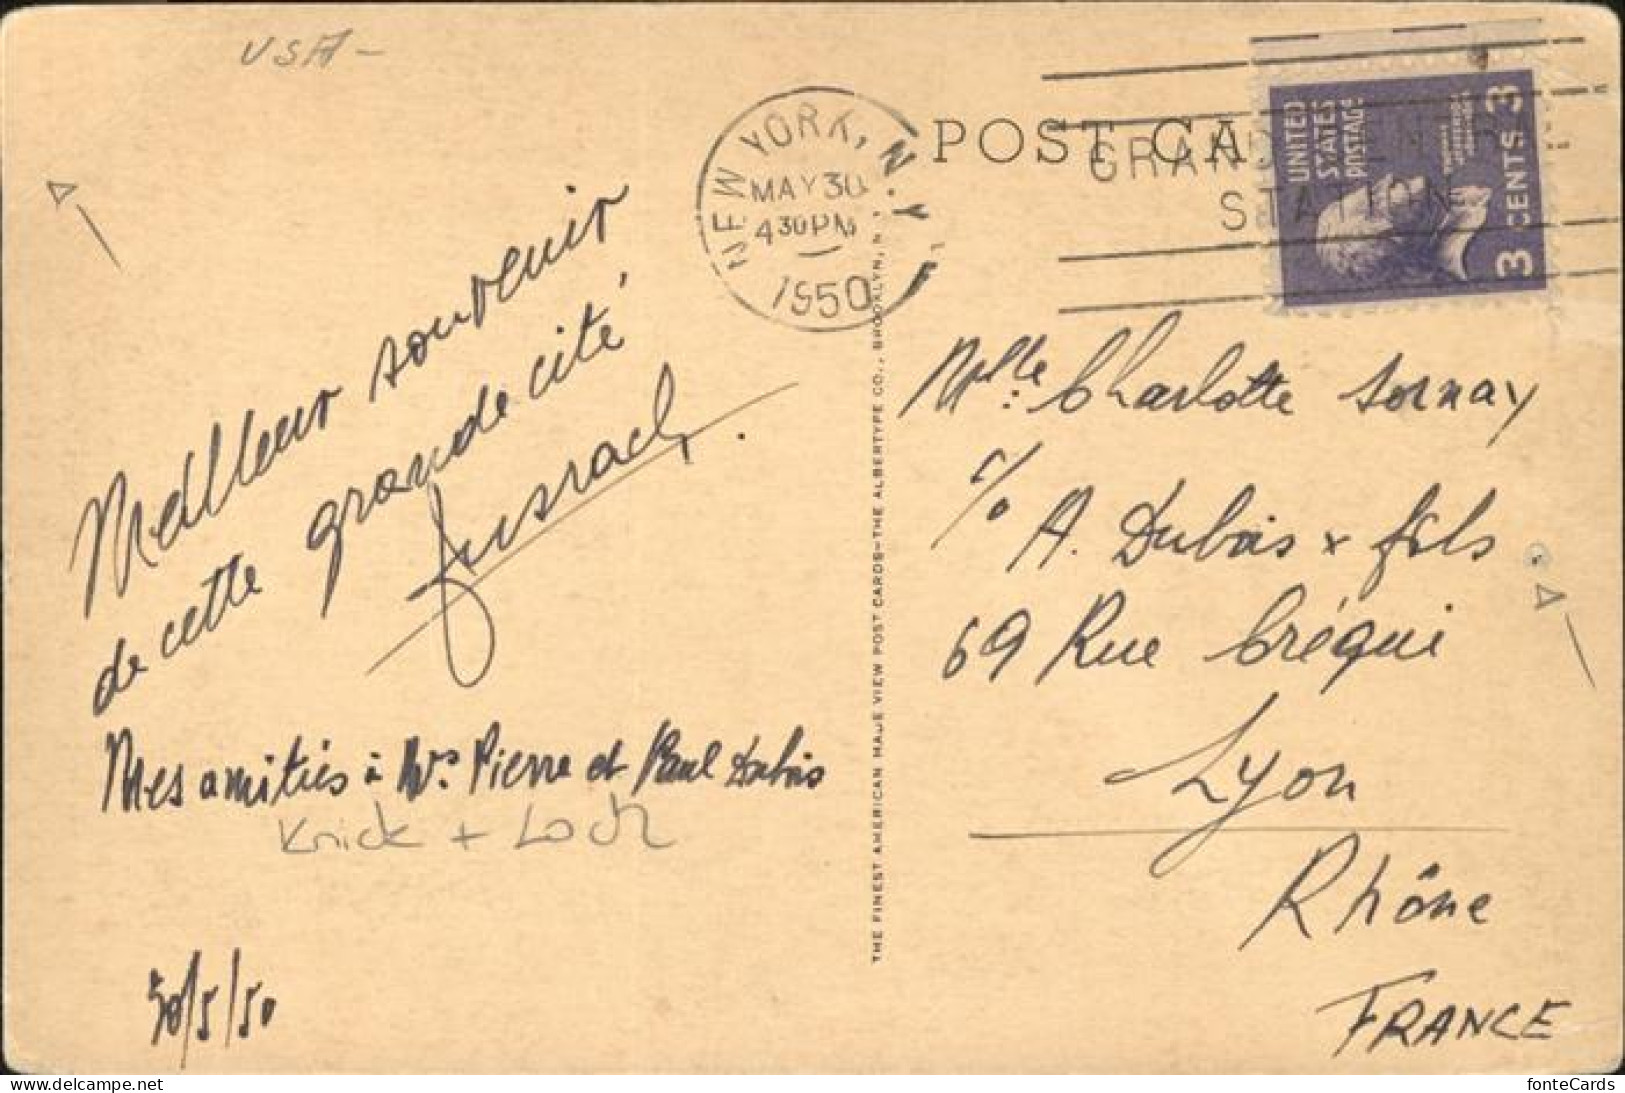 USA -
NEW YORK, N.Y.
MAY 30
4 30 PM
1950
POST CA
GRAND
STATION
UNITED
STATES
POSTAGE
3 CENTS 3
Meilleur souvenir
de cette grande cité
Mes amitiés à Mrs. Pierre et Paul Dubois
Knick + Loch
30/5/50
THE FINEST AMERICAN MADE VIEW POST CARDS—THE ALBERTYPE CO., BROOKLYN, N.
Mlle: Charlotte Sornay
c/o A. Dubois & fils
69 Rue Créqui
Lyon
Rhône
FRANCE
fonteCards